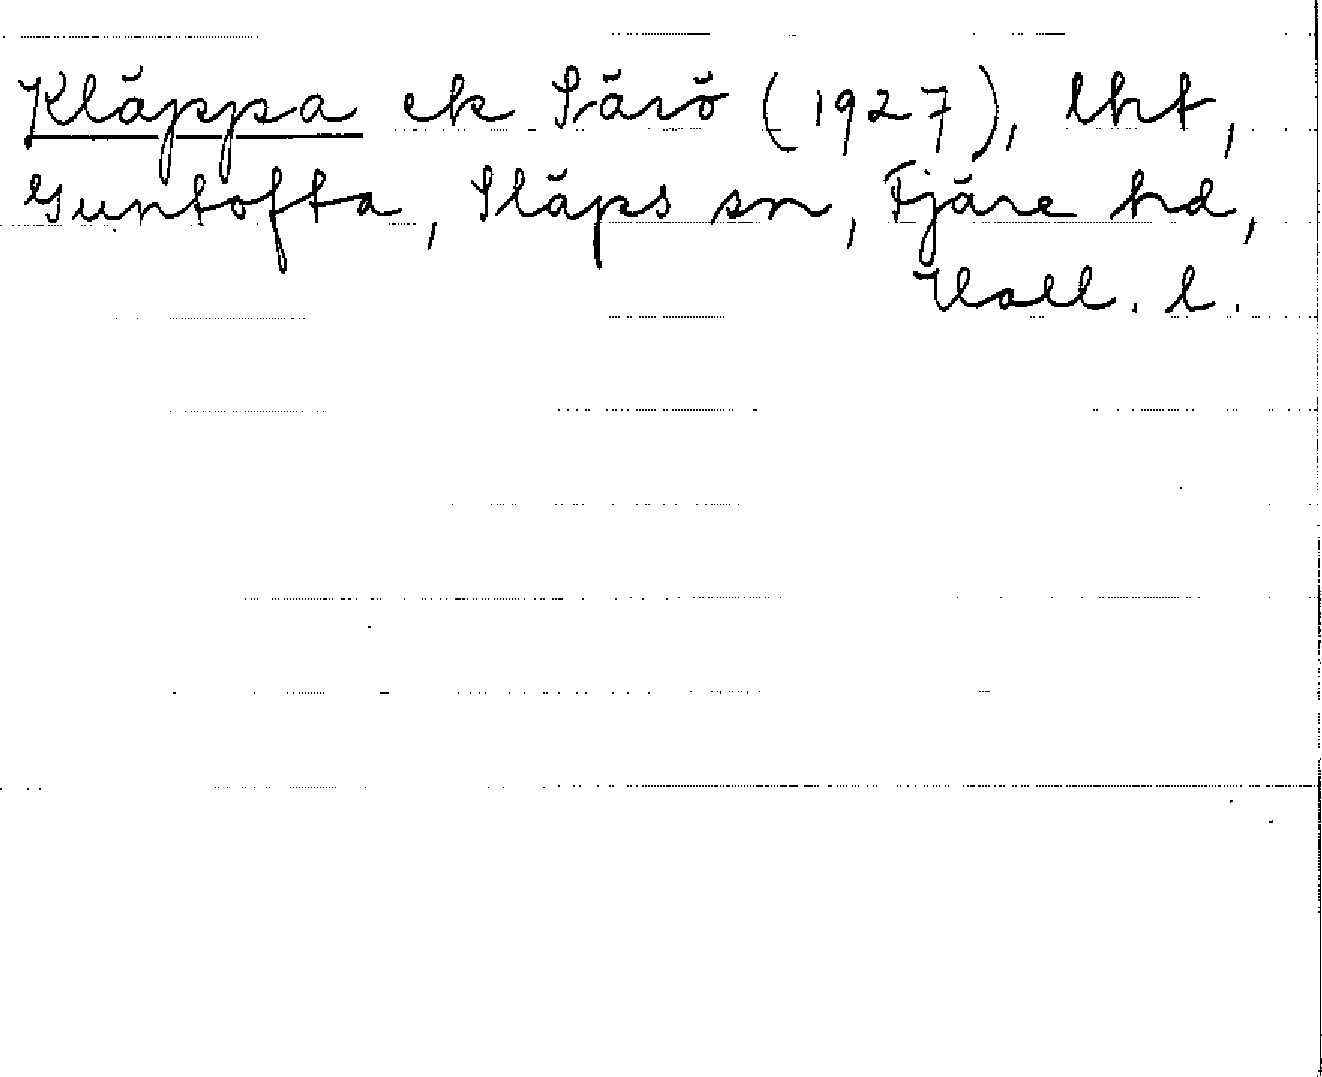 Kläppa ek Särö (1927), lht,
Guntofta, Släps sn, Fjäre hd,
Hall. l.